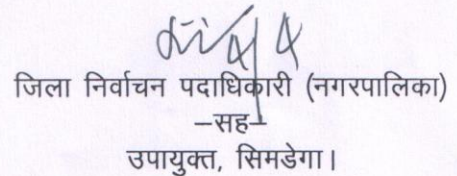 जिला निर्वाचन पदाधिकारी (नगरपालिका)
–सह–
उपायुक्त, सिमडेगा।